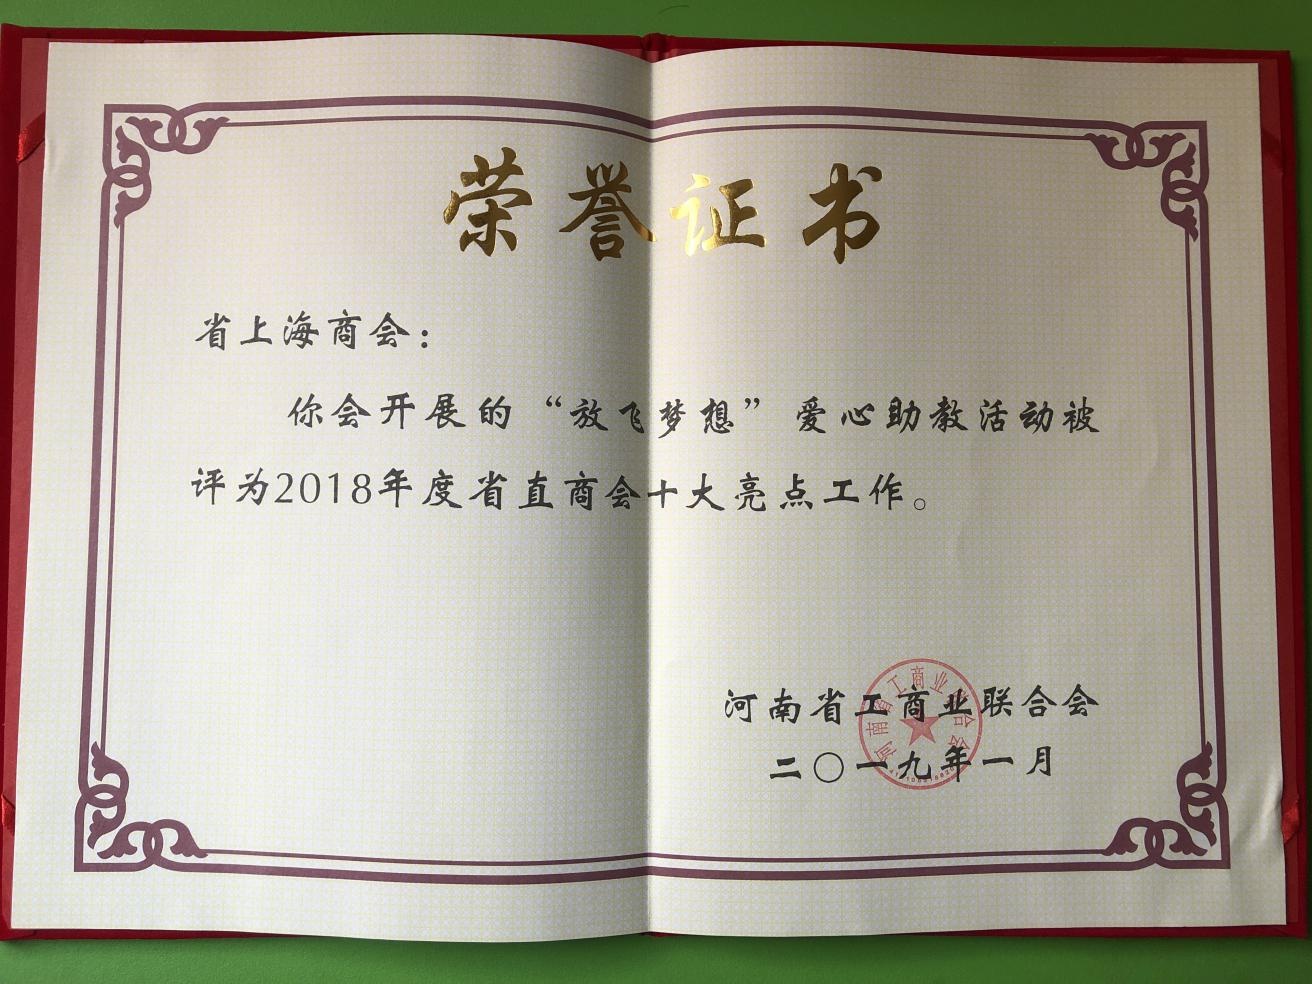 荣誉证书
省上海商会：
你会开展的“放飞梦想”爱心助教活动被
评为2018年度省直商会十大亮点工作。
河南省工商业联合会
二〇一九年一月
河南省工商业联合会